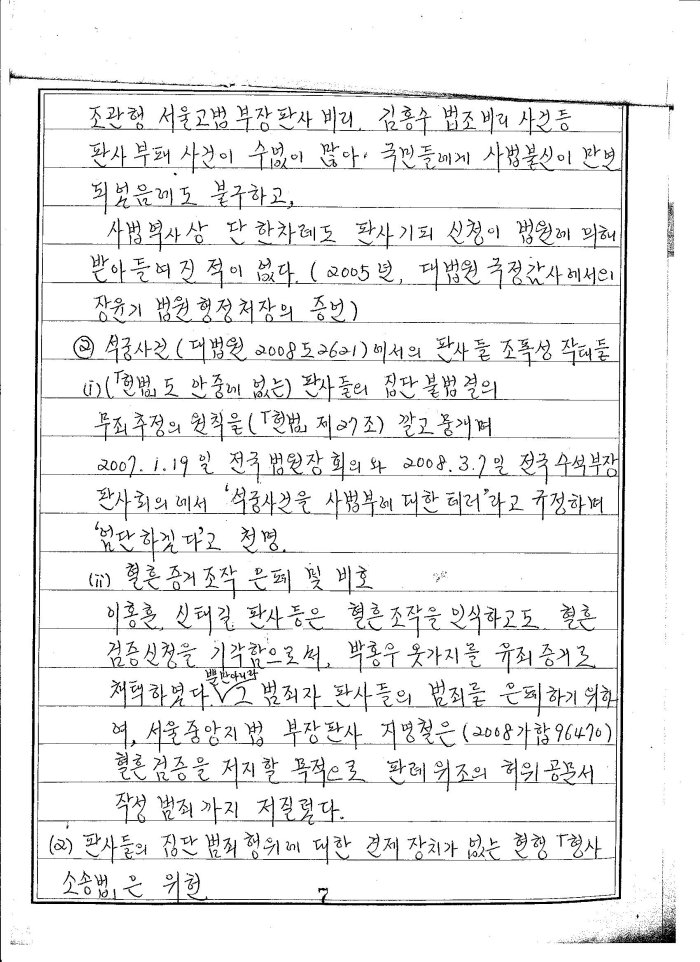 조관형 서울고법 부장판사 비리, 김홍수 법조비리 사건등
판사 부패 사건이 수없이 많아, 국민들에게 사법불신이 만연
되었음에도 불구하고,
사법역사상 단 한차례도 판사기피 신청이 법원에 의해
받아들여진 적이 없다. (2005년, 대법원 국정감사에서의
장윤기 법원행정처장의 증언)
② 석궁사건(대법원 2008도2621)에서의 판사들 조폭성 작태들
(i) (「헌법」도 안중에 없는) 판사들의 집단 불법결의
무죄추정의 원칙을 (「헌법」 제27조) 깔고 뭉개며
2007.1.19일 전국 법원장 회의와 2008.3.7일 전국 수석부장
판사회의에서 '석궁사건을 사법부에 대한 테러'라고 규정하며
'엄단하겠다'고 천명.
(ii) 혈흔증거조작 은폐 및 비호
이홍훈, 신태길 판사등은 혈흔조작을 인식하고도, 혈흔
검증신청을 기각함으로써, 박홍우 옷가지를 유죄증거로
채택하였다. 뿐만아니라 그 범죄자 판사들의 범죄를 은폐하기 위하
여, 서울중앙지법 부장판사 지명철은 (2008가합96470)
혈흔검증을 저지할 목적으로 판례위조의 허위공문서
작성 범죄까지 저질렀다.
(2) 판사들의 집단범죄행위에 대한 견제 장치가 없는 현행 「형사
소송법」은 위헌
7